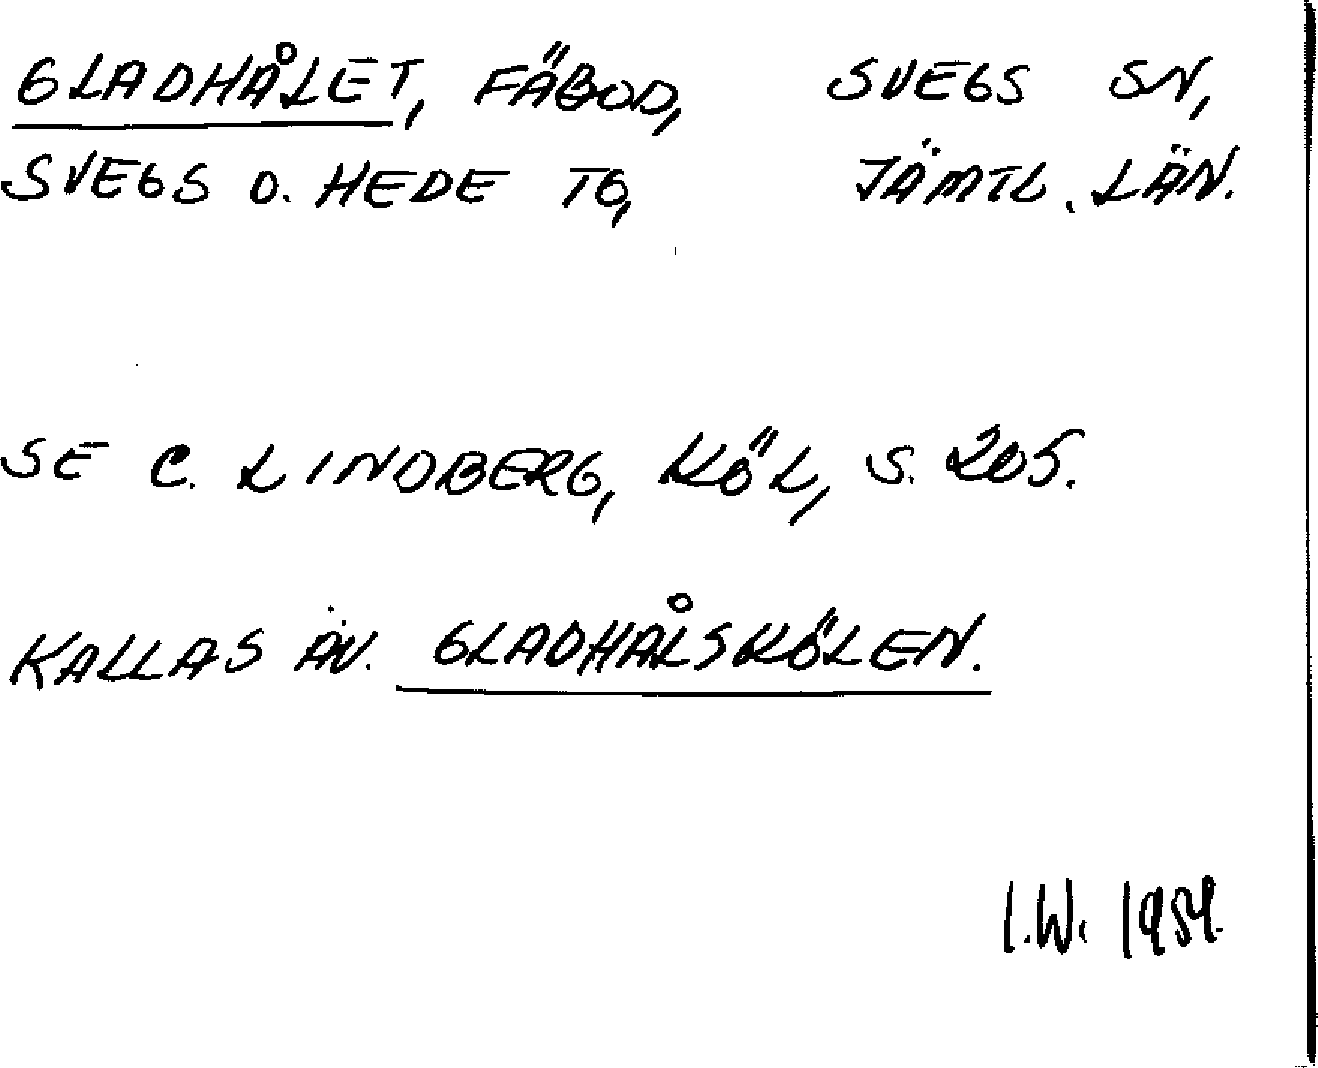 GLADHÅLET, FÄBOD, SVEGS SN,
SVEGS O. HEDE TG, JÄMTL. LÄN.
SE C. LINDBERG, KÖL, S. 205.
KALLAS ÄV. GLADHÅLSKÖLEN.
I.W. 1954.